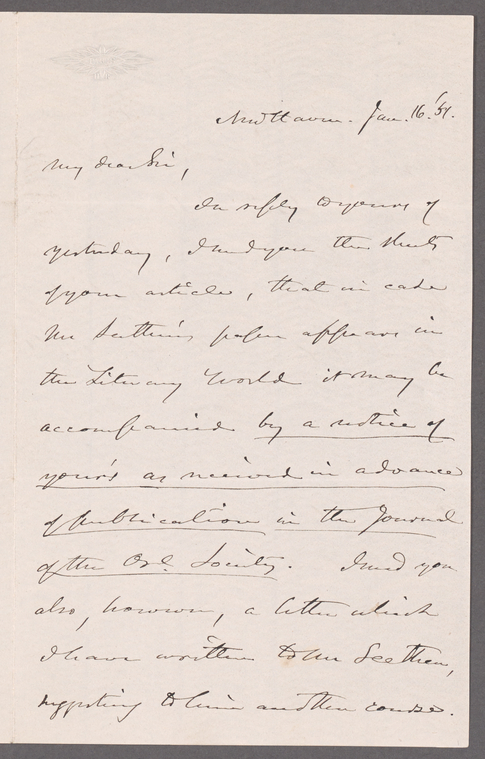 New Haven. Jan. 16. '51.
My dear Sir,
In reply to yours of
yesterday, I send you the sheets
of your article, that in case
Mr paper appears in
the Literary World it may be
accompanied by a notice of
yours as received in advance
of publication in the Journal
of the Orl. Society. I send you
also, however, a letter which
I have written to Mr
suggesting to him another course.